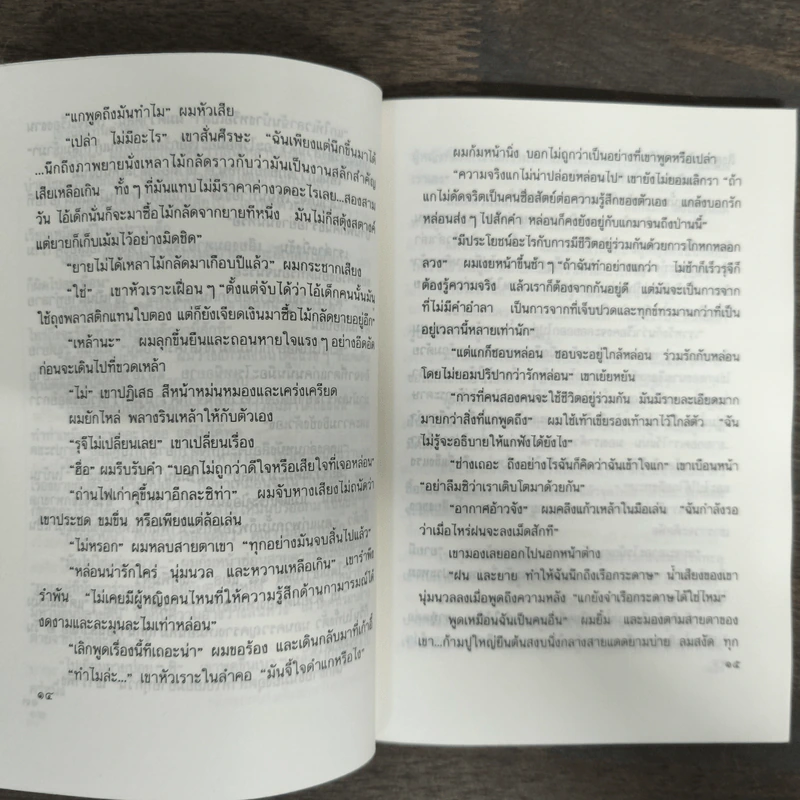 “แกพูดถึงมันทำไม” ผมหัวเสีย
“เปล่า ไม่มีอะไร” เขาสั่นศีรษะ “ฉันเพียงแต่นึกขึ้นมาได้
...นึกถึงภาพยายนั่งเหลาไม้กลัดราวกับว่ามันเป็นงานสลักสำคัญ
เสียเหลือเกิน ทั้งๆ ที่มันแทบไม่มีราคาค่างวดอะไรเลย...สองสาม
วัน ไอ้เด็กนั่นก็จะมาซื้อไม้กลัดจากยายทีหนึ่ง มันไม่กี่สตุ้งสตางค์
แต่ยายก็เก็บเม้มไว้อย่างมิดชิด”
“ยายไม่ได้เหลาไม้กลัดมาเกือบปีแล้ว” ผมกระชากเสียง
“ใช่” เขาหัวเราะเฝื่อนๆ “ตั้งแต่จับได้ว่าไอ้เด็กคนนั้นมัน
ใช้ถุงพลาสติกแทนใบตอง แต่ก็ยังเจียดเงินมาซื้อไม้กลัดยายอยู่อีก”
“เหล้านะ” ผมลุกขึ้นยืนและถอนหายใจแรงๆ อย่างอึดอัด
ก่อนจะเดินไปที่ขวดเหล้า
“ไม่” เขาปฏิเสธ สีหน้าหม่นหมองและเคร่งเครียด
ผมยักไหล่ พลางรินเหล้าให้กับตัวเอง
“รุจีไม่เปลี่ยนเลย” เขาเปลี่ยนเรื่อง
“ฮื่อ” ผมรีบรับคำ “บอกไม่ถูกว่าดีใจหรือเสียใจที่เจอหล่อน”
“ถ่านไฟเก่าคุขึ้นมาอีกละซิท่า” ผมจับหางเสียงไม่ถนัดว่า
เขาประชด ขมขื่น หรือเพียงแต่ล้อเล่น
“ไม่หรอก” ผมหลบสายตาเขา “ทุกอย่างมันจบสิ้นไปแล้ว”
“หล่อนน่ารักใคร่ นุ่มนวล และหวานเหลือเกิน” เขารำพึง
รำพัน “ไม่เคยมีผู้หญิงคนไหนที่ให้ความรู้สึกด้านกามารมณ์ได้
งดงามและละมุนละไมเท่าหล่อน”
“เลิกพูดเรื่องนี้ทีเถอะน่า” ผมขอร้อง และเดินกลับมาที่เก้าอี้
“ทำไมล่ะ...” เขาหัวเราะในลำคอ “มันจี้ใจดำแกหรือไง”
๑๔
ผมก้มหน้านิ่ง บอกไม่ถูกว่าเป็นอย่างที่เขาพูดหรือเปล่า
“ความจริงแกไม่น่าปล่อยหล่อนไป” เขายังไม่ยอมเลิกรา “ถ้า
แกไม่ดัดจริตเป็นคนซื่อสัตย์ต่อความรู้สึกของตัวเอง แกล้งบอกรัก
หล่อนส่งๆ ไปสักคำ หล่อนก็คงยังอยู่กับแกมาจนถึงป่านนี้”
“มีประโยชน์อะไรกับการมีชีวิตอยู่ร่วมกันด้วยการโกหกหลอก
ลวง” ผมเงยหน้าขึ้นช้าๆ “ถ้าฉันทำอย่างแกว่า ไม่ช้าก็เร็วรุจีก็
ต้องรู้ความจริง แล้วเราก็ต้องจากกันอยู่ดี แต่มันจะเป็นการจาก
ที่ไม่มีคำอำลา เป็นการจากที่เจ็บปวดและทุกข์ทรมานกว่าที่เป็น
อยู่เวลานี้หลายเท่านัก”
“แต่แกก็ชอบหล่อน ชอบจะอยู่ใกล้หล่อน ร่วมรักกับหล่อน
โดยไม่ยอมปริปากว่ารักหล่อน” เขาเย้ยหยัน
“การที่คนสองคนจะใช้ชีวิตอยู่ร่วมกัน มันมีรายละเอียดมาก
มายกว่าสิ่งที่แกพูดถึง” ผมใช้เท้าเขี่ยรองเท้ามาไว้ใกล้ตัว “ฉัน
ไม่รู้จะอธิบายให้แกฟังได้ยังไง”
“ช่างเถอะ ถึงอย่างไรฉันก็คิดว่าฉันเข้าใจแก” เขาเบือนหน้า
“อย่าลืมซิว่าเราเติบโตมาด้วยกัน”
“อากาศอ้าวจัง” ผมคลึงแก้วเหล้าในมือเล่น “ฉันกำลังรอ
ว่าเมื่อไหร่ฝนจะลงเม็ดสักที”
เขามองเลยออกไปนอกหน้าต่าง
“ฝน และยาย ทำให้ฉันนึกถึงเรือกระดาษ” น้ำเสียงของเขา
นุ่มนวลลงเมื่อพูดถึงความหลัง “แกยังจำเรือกระดาษได้ใช่ไหม”
พูดเหมือนฉันเป็นคนอื่น” ผมยิ้ม และมองตามสายตาของ
เขา...ก้ามปูใหญ่ยืนต้นสงบนิ่งกลางสายแดดยามบ่าย ลมสงัด ทุก
๑๕